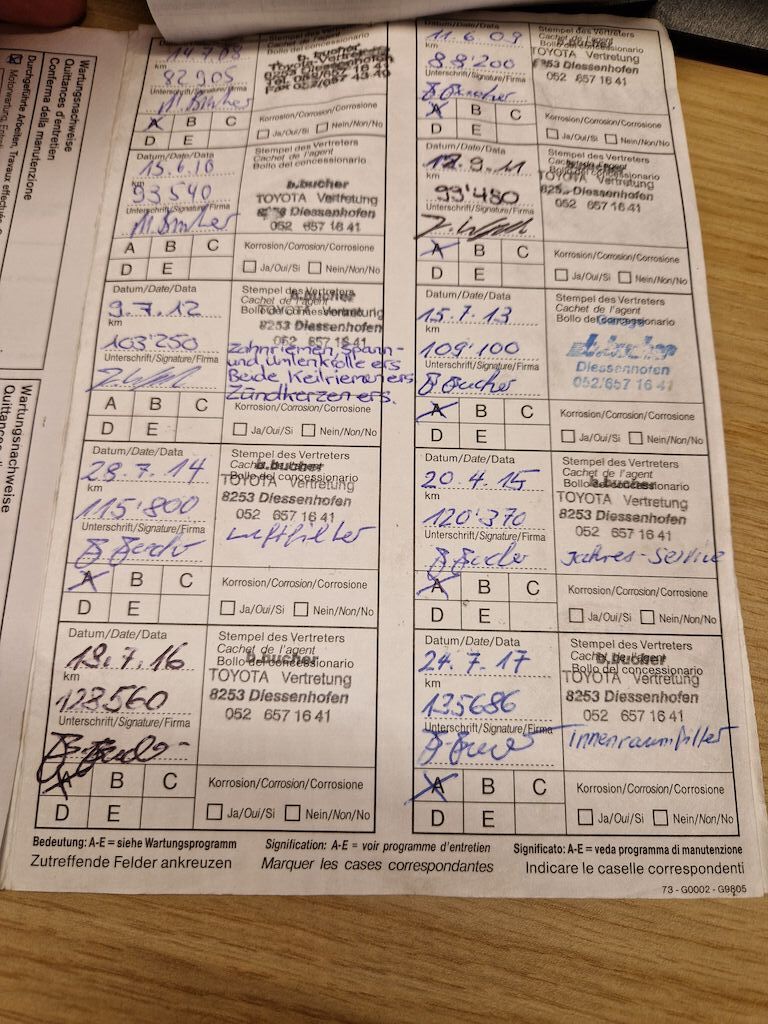 Wartungsnachweise
Quittances d'entretien
Conferma della manutenzione
Durchgeführte Arbeiten, Travaux effectués
Wartungsnachweise
Quittances
Datum/Date/Data
14.7.08
km
82'905
Unterschrift/Signature/Firma
Stempel des Vertreters
Cachet de l'agent
Bollo del concessionario
b.bucher
Toyota-Vertretung
8253 Diessenhofen
A B C
D E
Korrosion/Corrosion/Corrosione
Ja/Oui/Si Nein/Non/No
Datum/Date/Data
11.6.09
km
88'200
Unterschrift/Signature/Firma
Stempel des Vertreters
Cachet de l'agent
Bollo del concessionario
TOYOTA Vertretung
8253 Diessenhofen
052 657 16 41
A B C
D E
Korrosion/Corrosion/Corrosione
Ja/Oui/Si Nein/Non/No
Datum/Date/Data
15.6.10
km
93'540
Unterschrift/Signature/Firma
Stempel des Vertreters
Cachet de l'agent
Bollo del concessionario
b.bucher
TOYOTA Vertretung
8253 Diessenhofen
052 657 16 41
A B C
D E
Korrosion/Corrosion/Corrosione
Ja/Oui/Si Nein/Non/No
Datum/Date/Data
12.9.11
km
99'480
Unterschrift/Signature/Firma
Stempel des Vertreters
Cachet de l'agent
Bollo del concessionario
TOYOTA Vertretung
8253 Diessenhofen
052 657 16 41
A B C
D E
Korrosion/Corrosion/Corrosione
Ja/Oui/Si Nein/Non/No
Datum/Date/Data
9.7.12
km
103'250
Unterschrift/Signature/Firma
Stempel des Vertreters
Cachet de l'agent
Bollo del concessionario
b.bucher
TOYOTA Vertretung
8253 Diessenhofen
052 657 16 41
Zahnriemen, Spann-
und Umlenkrolle ers
Beide Keilriemen ers.
Zündkerzen ers.
A B C
D E
Korrosion/Corrosion/Corrosione
Ja/Oui/Si Nein/Non/No
Datum/Date/Data
15.7.13
km
109'100
Unterschrift/Signature/Firma
B Bucher
Stempel des Vertreters
Cachet de l'agent
Bollo del concessionario
Garage
b.bucher
Diessenhofen
052/657 16 41
A B C
D E
Korrosion/Corrosion/Corrosione
Ja/Oui/Si Nein/Non/No
Datum/Date/Data
28.7.14
km
115'800
Unterschrift/Signature/Firma
Stempel des Vertreters
Cachet de l'agent
Bollo del concessionario
b.bucher
TOYOTA Vertretung
8253 Diessenhofen
052 657 16 41
Luftfilter
A B C
D E
Korrosion/Corrosion/Corrosione
Ja/Oui/Si Nein/Non/No
Datum/Date/Data
20.4.15
km
120'370
Unterschrift/Signature/Firma
Stempel des Vertreters
Cachet de l'agent
Bollo del concessionario
b.bucher
TOYOTA Vertretung
8253 Diessenhofen
052 657 16 41
Jahres-Service
A B C
D E
Korrosion/Corrosion/Corrosione
Ja/Oui/Si Nein/Non/No
Datum/Date/Data
19.7.16
km
128560
Unterschrift/Signature/Firma
Stempel des Vertreters
Cachet de l'agent
Bollo del concessionario
b.bucher
TOYOTA Vertretung
8253 Diessenhofen
052 657 16 41
A B C
D E
Korrosion/Corrosion/Corrosione
Ja/Oui/Si Nein/Non/No
Datum/Date/Data
24.7.17
km
135686
Unterschrift/Signature/Firma
Stempel des Vertreters
Cachet de l'agent
Bollo del concessionario
b.bucher
TOYOTA Vertretung
8253 Diessenhofen
052 657 16 41
Innenraumfilter
A B C
D E
Korrosion/Corrosion/Corrosione
Ja/Oui/Si Nein/Non/No
Bedeutung: A-E = siehe Wartungsprogramm Signification: A-E = voir programme d'entretien Significato: A-E = veda programma di manutenzione
Zutreffende Felder ankreuzen Marquer les cases correspondantes Indicare le caselle correspondenti
73 - G0002 - G9805